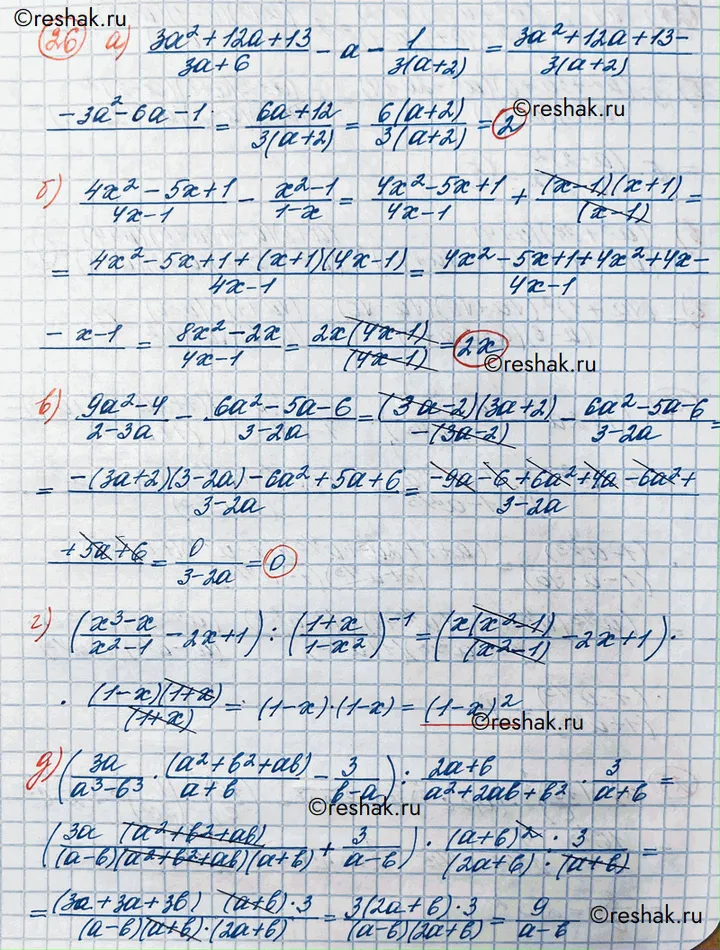 ©reshak.ru
26 а) (3a²+12a+13)/(3a+6) - a - 1/(3(a+2)) = (3a²+12a+13-)/(3(a+2))
(-3a²-6a-1)/ = (6a+12)/(3(a+2)) = (6(a+2))/(3(a+2)) = 2
©reshak.ru
б) (4x²-5x+1)/(4x-1) - (x²-1)/(1-x) = (4x²-5x+1)/(4x-1) + ((x-1)(x+1))/(x-1) =
= (4x²-5x+1+(x+1)(4x-1))/(4x-1) = (4x²-5x+1+4x²+4x-)/(4x-1)
(-x-1)/ = (8x²-2x)/(4x-1) = (2x(4x-1))/(4x-1) = 2x
©reshak.ru
в) (9a²-4)/(2-3a) - (6a²-5a-6)/(3-2a) = ((3a-2)(3a+2))/(-(3a-2)) - (6a²-5a-6)/(3-2a) =
= (-(3a+2)(3-2a)-6a²+5a+6)/(3-2a) = (-9a-6+6a²+4a-6a²+)/(3-2a)
(+5a+6)/ = 0/(3-2a) = 0
©reshak.ru
г) ((x³-x)/(x²-1) - 2x+1) : ((1+x)/(1-x²))⁻¹ = ((x(x²-1))/(x²-1) - 2x+1) ·
· ((1-x)(1+x))/(1+x) = (1-x)·(1-x) = (1-x)²
©reshak.ru
д) (3a/(a³-b³) · (a²+b²+ab)/(a+b) - 3/(b-a)) : (2a+b)/(a²+2ab+b²) · 3/(a+b) =
©reshak.ru
((3a (a²+b²+ab))/((a-b)(a²+b²+ab)(a+b)) + 3/(a-b)) · ((a+b)² · 3)/((2a+b)·(a+b)) =
= ((3a+3a+3b) (a+b)·3)/((a-b)(a+b)·(2a+b)) = (3(2a+b)·3)/((a-b)(2a+b)) = 9/(a-b)
©reshak.ru